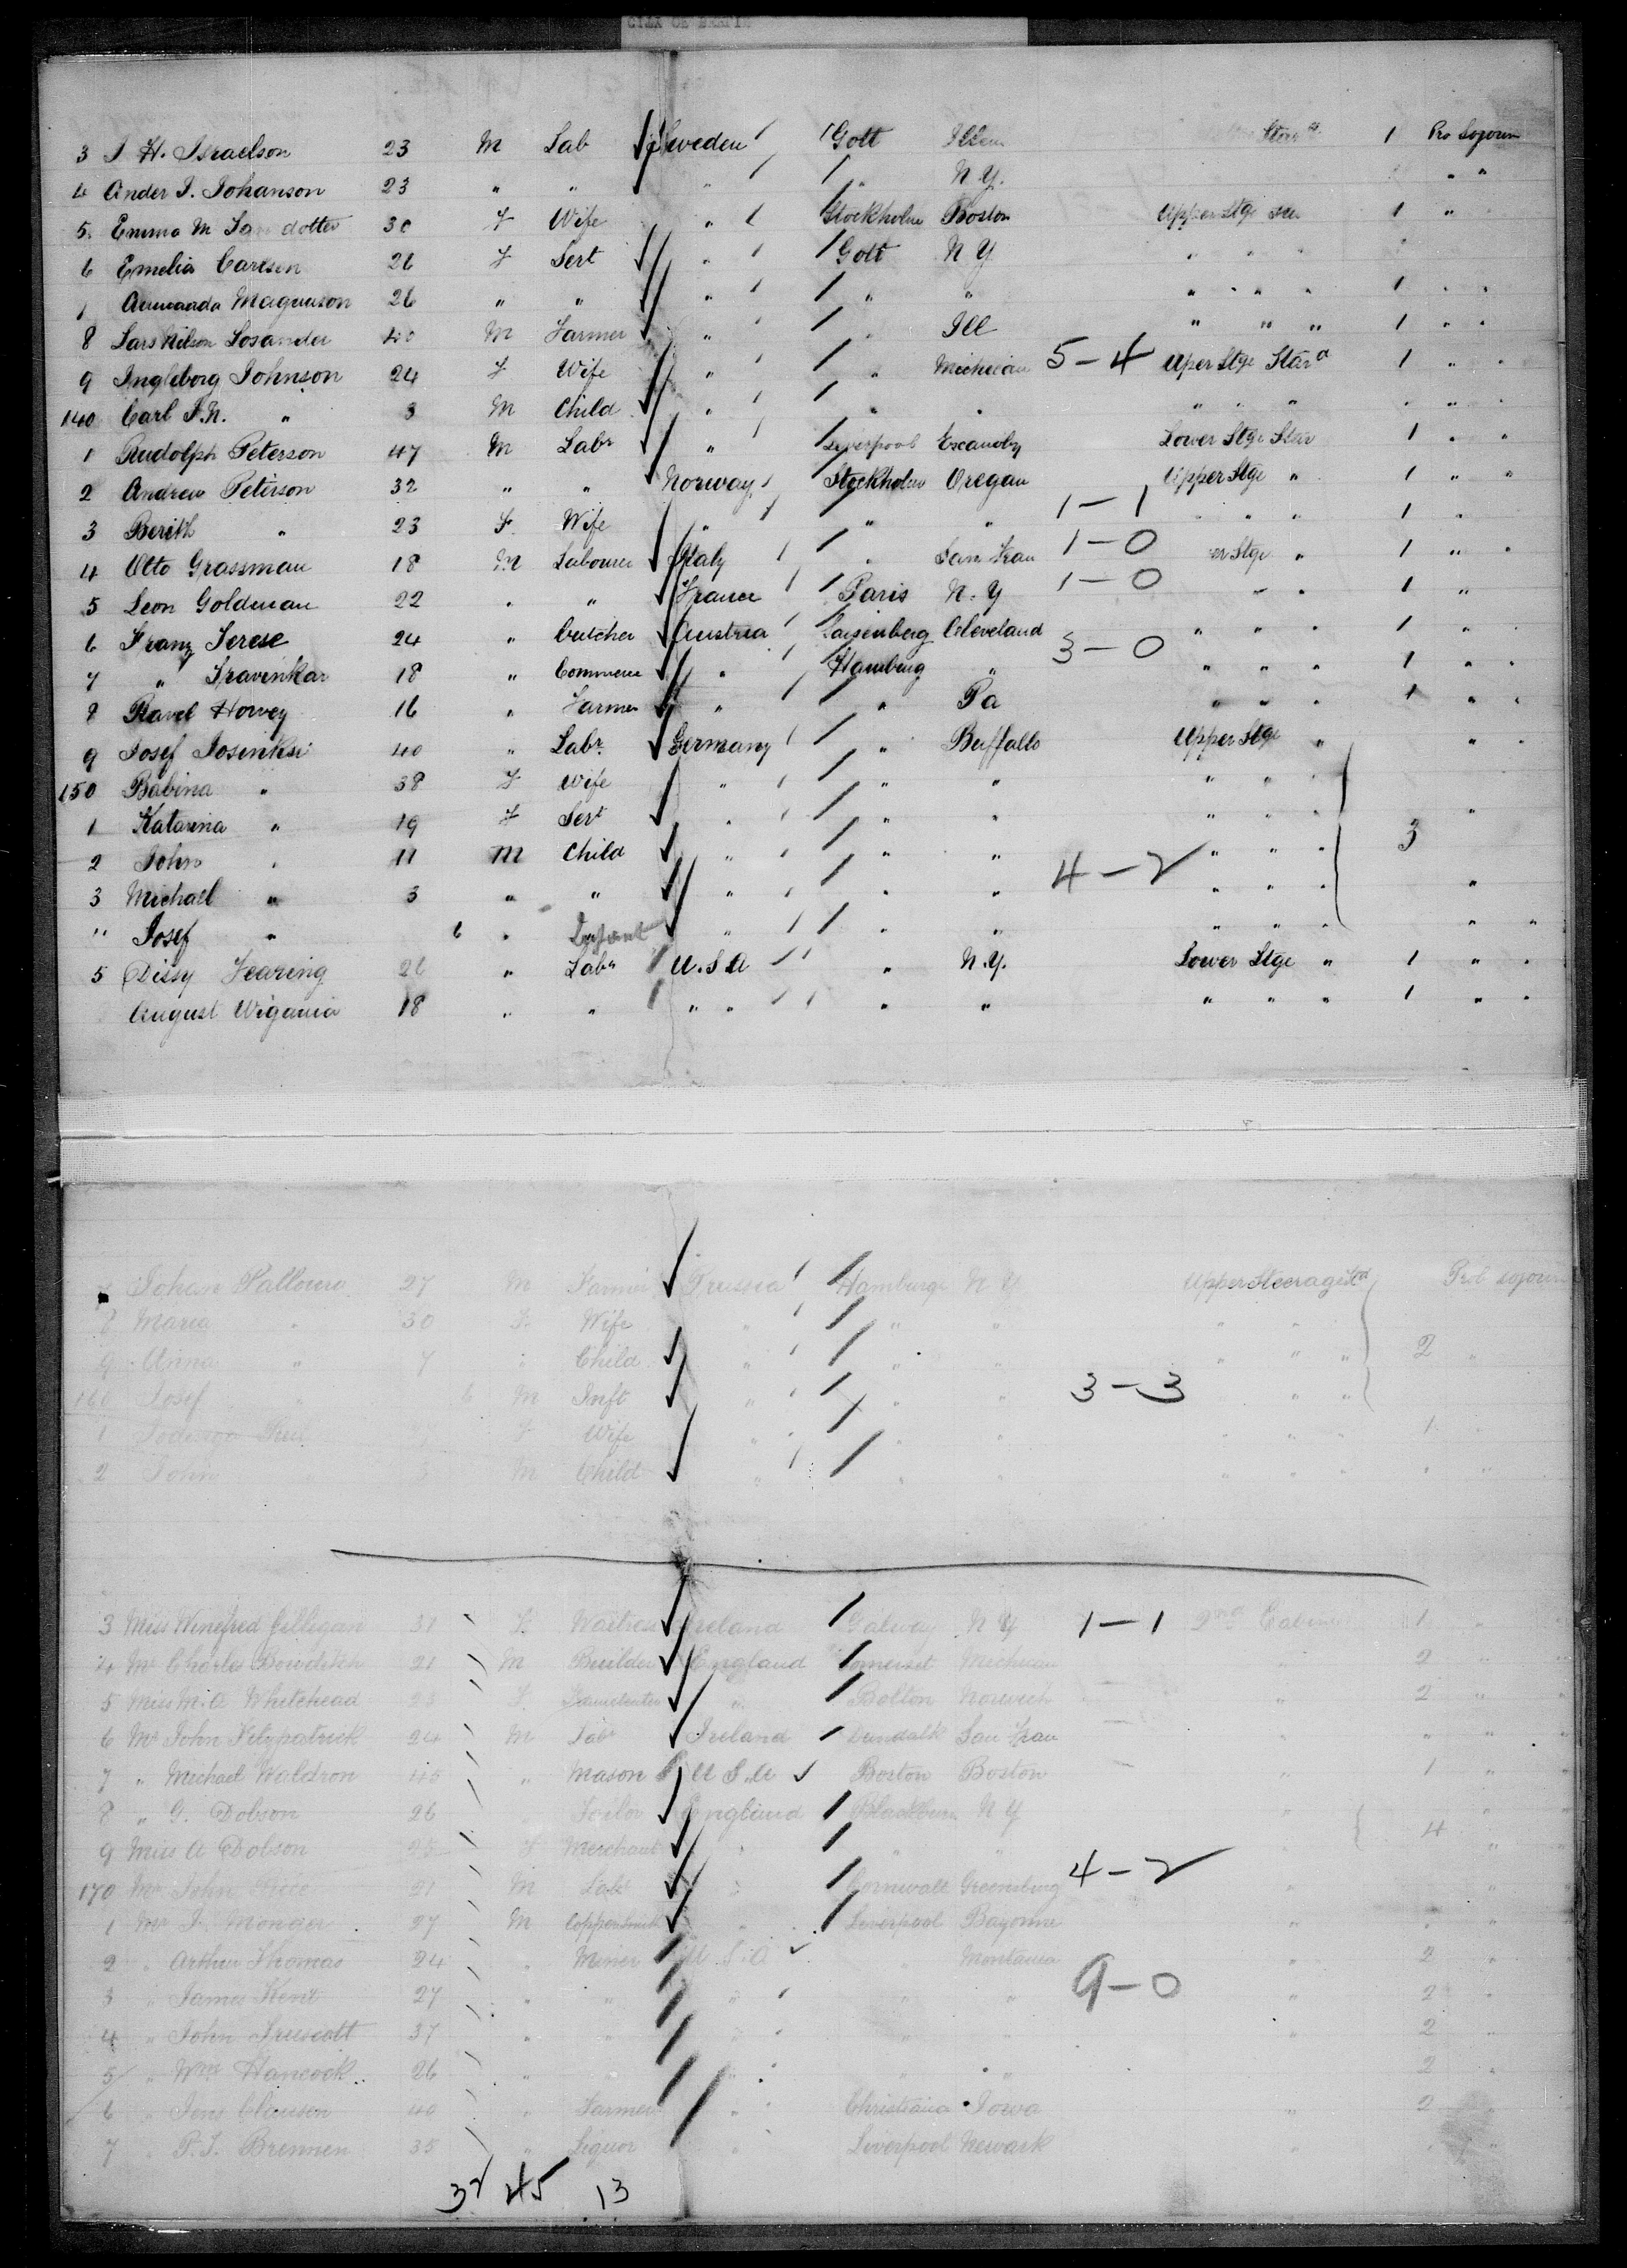 CITY OF BERLIN
3 J H. Israelson 23 M Lab Sweden Gott Star^d 1 Pro Sojourn
4 Ander J. Johanson 23 " " " " N Y. " "
5. Emma M Jan dotter 30 F Wife " Stockholm Boston Upper Stge 1 "
6 Emelia Carlson 26 F Sert " Gott N Y " " "
Magnuson 26 " " " " " " " " " 1 " "
8 Lars Nilson Losander 40 M Farmer " " Ill " " " 1 " "
9 Ingleborg Johnson 24 F Wife " " 5-4 Uper Stge Star^d 1 " "
140 Carl J.N. " 3 M Child " " " " " " " " "
1 Rudolph Peterson 47 M Lab^r " Liverpool Lower Stge Star 1 " "
2 Andrew Peterson 32 " " Norway Stockholm Oregan Upper Stge " 1 " "
3 Berith " 23 F. Wife " " " 1-1 " " " 1 "
4 Otto Grassman 18 M Labourer Italy " San Fran 1-0 er Stge " 1 " "
5 Leon Goldman 22 " " France Paris N. Y 1-0 " " 1 "
6 Franz Terese 24 " Butcher Austria Cleveland " " " 1 "
7 " 18 " Commerce " Hamburg " 3-0 " " " 1 " "
8 Pavel Horvey 16 " Farmer " " Pa " " " 1 " "
9 Josef Josinksi 40 " Lab^r. Germany " Buffallo Upper Stge " " "
150 Babina " 38 F Wife " " " " " "
1 Katarina " 19 F Ser^t " " " " " " "
2 John " 11 M Child " " " " " " 3
3 Michael " 3 " " " " " 4-2 " " " "
" Josef " 6 " Infant " " " " " " " "
5 Fearing 26 " Lab^r U.S.A " N.Y. Lower Stge " 1 " "
August Wigania 18 " " " " " " " " " 1 " "
Johan 27 M Farmer Prussia Hamburg N Y Upper Steerage St^d Prob sojourn
8 Maria " 30 F. Wife " " " " "
9 Anna " 7 " Child " " " " " " 2 "
160 Josef 6 M Inft " " " 3-3 " "
1 F Wife " " " " " " 1
2 John " 3 M Child " " " " " " " "
3 Miss Winefred Gilligan 31 F. Waitress Ireland Galway N Y 1-1 2nd Cabin 1 "
4 Mr Charles Bowditch 21 M Builder England Somerset " 2 "
5 Miss M. A Whitehead F. " Bolton Norwich " 2 "
6 Mr John Fitzpatrick 24 M Lab^r Ireland Dundalk San Fran " " "
7 " Michael Waldron 45 " Mason U S. A Boston Boston " 1 "
8 " G. Dobson 26 England Blackburn N Y " "
9 Miss A Dobson 25 F Merchant " " " " 4 "
170 Mr John 21 M Lab^r " Cornwall Greensburg 4-2 " "
1 Mr J. 27 M Coppersmith " Liverpool Bayonne " " "
2 " Arthur Thomas 24 " Miner U. S. A " Montana " 2 "
3 " James Kent 27 " " " " " 9-0 " 2 "
4 " John Truscott 37 " " " " " " 2 "
5 " Wm Hancock 26 " " " " " 2 "
6 " Jens Clausen 40 " Farmer " Christiana Iowa " 2 "
7 " P. J. Brennen 35 " Liquor " Liverpool Newark " " "
32 45 13